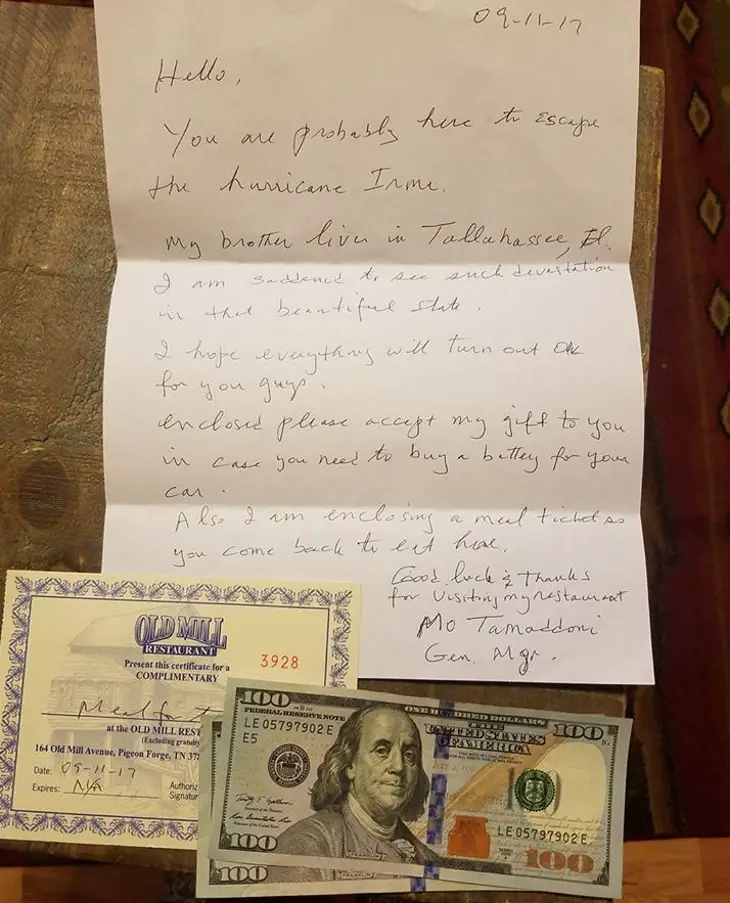 09-11-17
Hello,
You are probably here to escape
the hurricane Irma.
My brother lives in Tallahassee, Fl.
I am saddened to see such devastation
in that beautiful state.
I hope everything will turn out OK
for you guys.
enclosed please accept my gift to you
in case you need to buy a battey for your
car.
Also I am enclosing a meal ticket so
you come back to eat here.
Good luck & Thanks
for visiting my restaurant
Mo Tamaddoni
Gen. Mgr.
OLD MILL
RESTAURANT
3928
Present this certificate for a
COMPLIMENTARY
Meal for
at the OLD MILL REST
(Excluding gratuity
164 Old Mill Avenue, Pigeon Forge, TN 37
Date: 09-11-17
Expires: N/A
Authoriz
Signatur
100
FEDERAL RESERVE NOTE
ONE HUNDRED DOLLARS
100
LE 05797902 E
E5
THE
UNITED STATES
OF AMERICA
LE 05797902 E
100
FRANKLIN
100
100
FRANKLIN